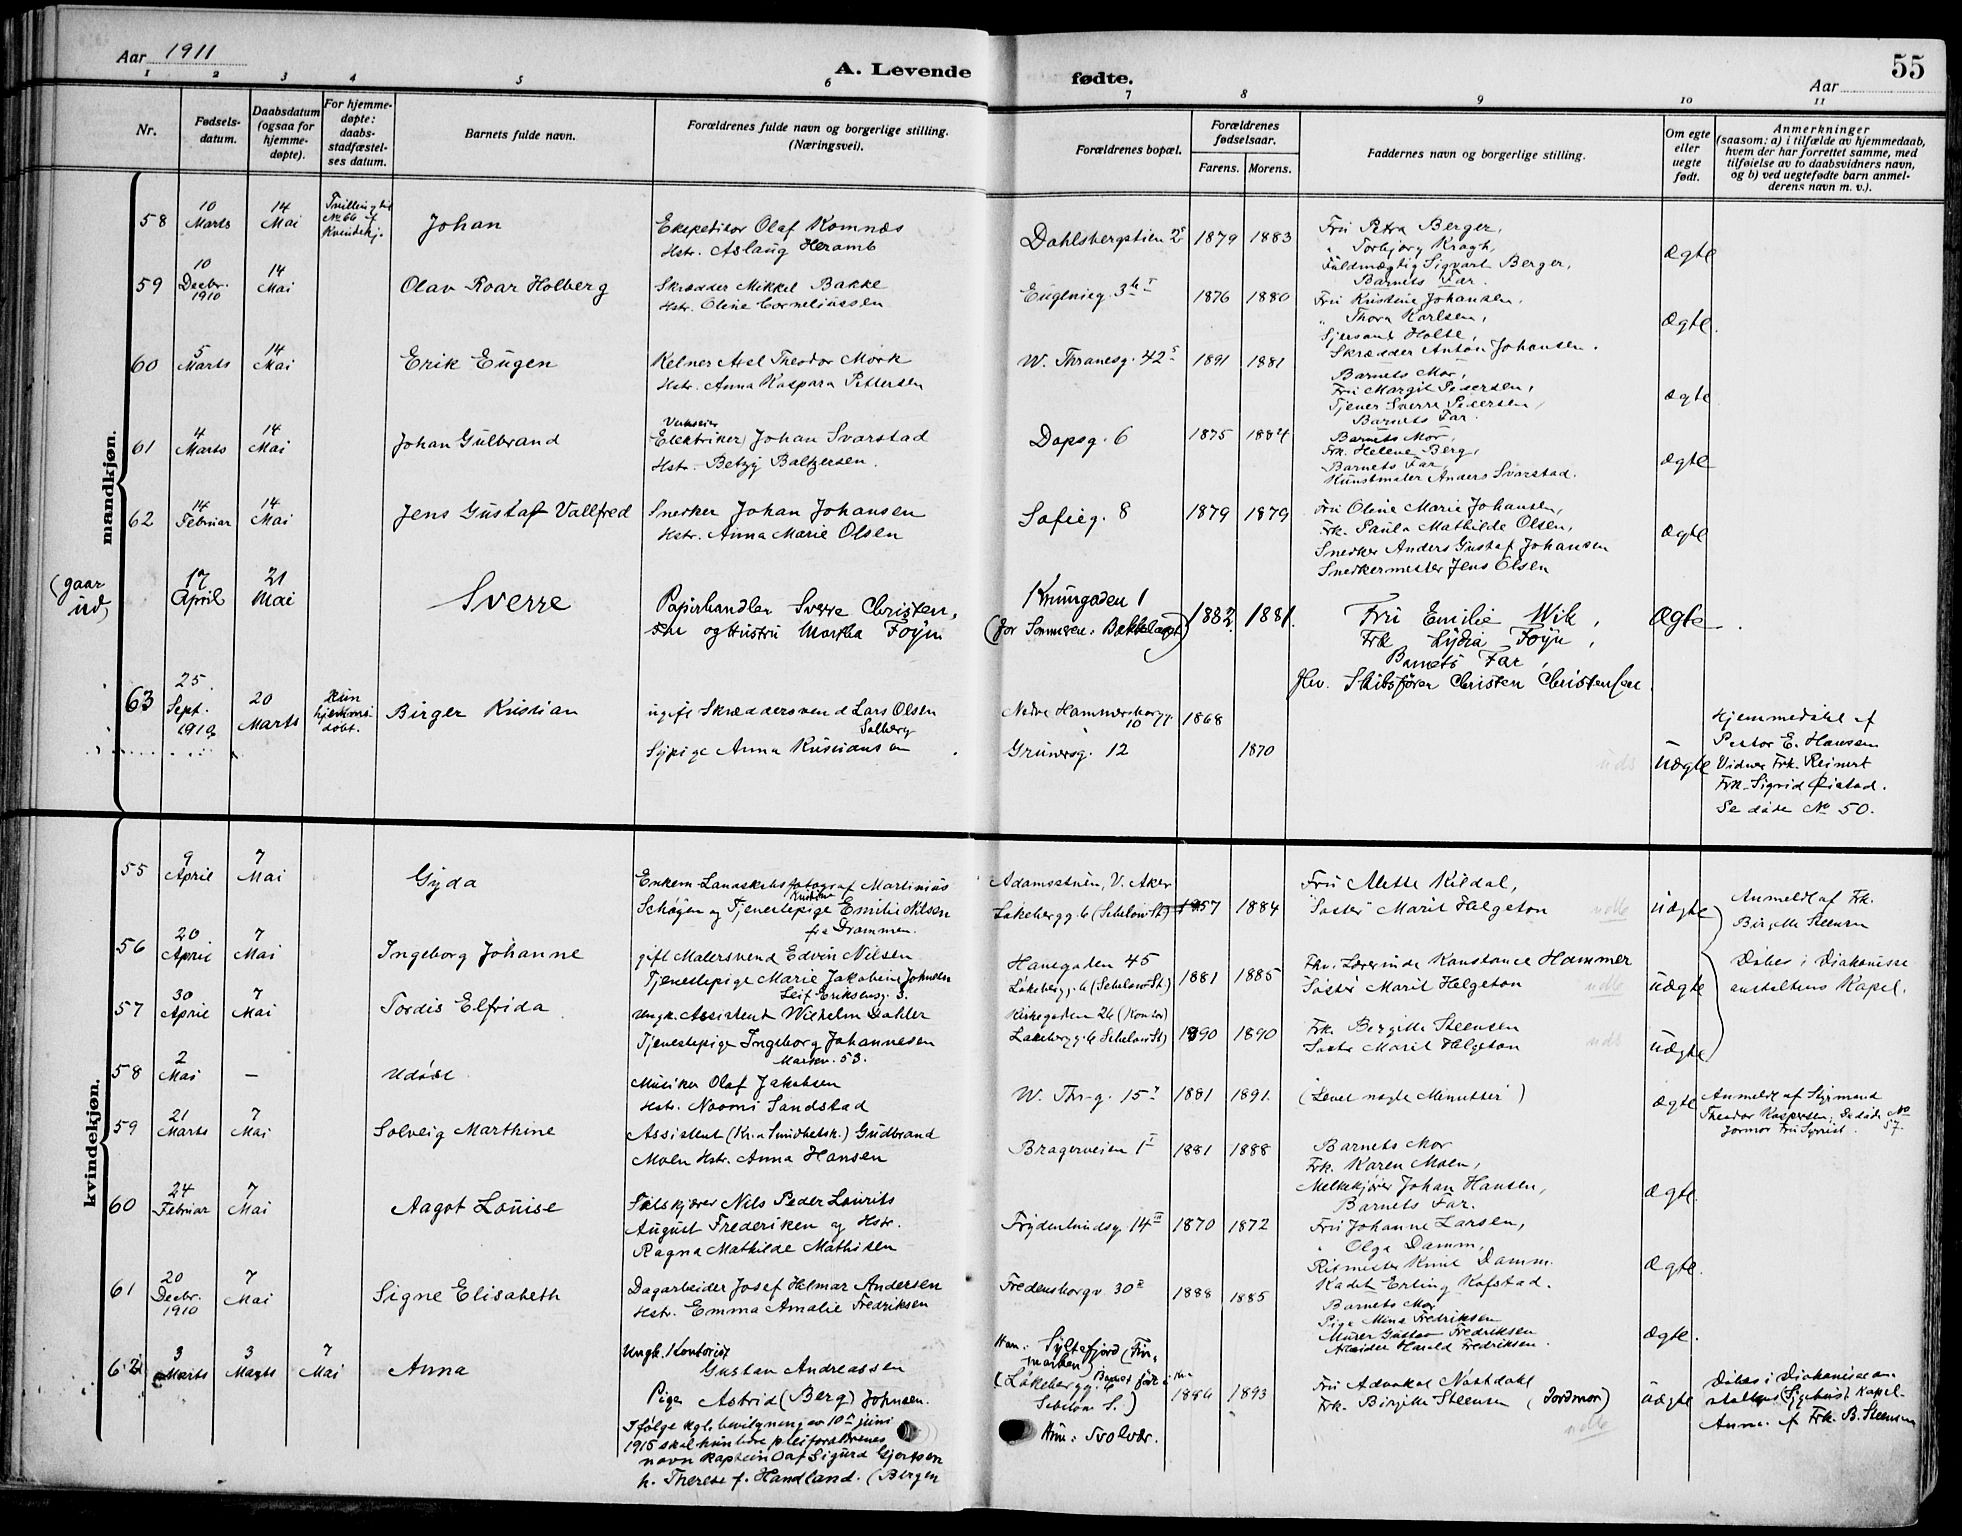 Aar 1911
A. Levende
fødte.
Aar
55
1 2 3 4 5 6 7 8 9 10 11
Nr.
Fødsels-
datum.
Daabsdatum
(ogsaa for
hjemme-
døpte).
For hjemme-
døpte:
daabs-
stadfæstel-
ses datum.
Barnets fulde navn.
Forældrenes fulde navn og borgerlige stilling.
(Næringsvei).
Forældrenes bopæl.
Forældrenes
fødselsaar.
Farens. Morens.
Faddernes navn og borgerlige stilling.
Om egte
eller
uegte
født.
Anmerkninger
(saasom: a) i tilfælde av hjemmedaab,
hvem der har forrettet samme, med
tilføielse av to daabsvidners navn,
og b) ved uegtefødte barn anmel-
derens navn m. v.).
mandkjøn.
58
10
Marts
14
Mai
Tvilling til
No 66 af
Kvindekj.
Johan
Ekspeditør Olaf Komnæs
Hstr. Aslaug Heramb
Dahlsbergstien 2
1879 1883
Fru Petra Berger,
" Torbjørg Kragh,
Fuldmægtig Sigvart Berger,
Barnets Far.
Ægte
59
10
Decbr.
1910
14
Mai
Olav Roar Holberg
Skrædder Mikkel Bakke
Hstr. Oline Corneliussen
Eugenieg. 3
1876 1880
Fru Kristine Johansen,
" Thora Karlsen,
Holte,
Skrædder Anton Johansen.
Ægte.
60
5
Marts
14
Mai
Erik Eugen
Kelner Axel Theodor Mørk
Hstr. Anna Kaspara Pettersen
W. Thranesg. 42
1891 1881
Barnets Mor,
Fru Margit Pedersen,
Tjener Sverre Pedersen,
Barnets Far.
Ægte
61
4
Marts
14
Mai
Johan Gulbrand
Verkseier
(Elektriker) Johan Svarstad
Hstr. Betzy Baltzersen.
Dopsg. 6
1875 1884
Barnets Mor,
Frk. Helene Berg,
Barnets Far,
Kunstmaler Anders Svarstad.
Ægte
62
14
Februar
14
Mai
Jens Gustaf Vallfred
Snedker Johan Johansen
Hstr. Anna Marie Olsen
Sofieg. 8
1879 1879
Fru Oline Marie Johansen,
Frk. Paula Mathilde Olsen,
Snedker Anders Gustaf Johansen
Snedkermester Jens Olsen
Ægte
(gaar
ud)
17
April
21
Mai
Sverre
Papirhandler Sverre Christen-
sen og Hustru Martha Foyn
Krumgaden 1
(for Sommeren: Bækkelaget)
1882. 1881.
Fru Emilie Wik,
Frk Lydia Foyn,
Barnets Far,
Hv. Skibsfører Christen Christensen.
Ægte
63
25.
Sept.
1910
20
Marts
Kun
hjemme-
døbt.
Birger Kristian
ugift Skræddersvend Lars Olsen
Solberg
Sypige Anna Kristiansen
Nedre Hammersborgg.
10
Grünersg. 12
1868
1870
uds
Uægte
Hjemmedøbt af
Pastor E. Hansen
Vidner Frk. Reinert
Frk. Sigrid Øistad.
Se døde No 50.
kvindekjøn.
55
9
April
7
Mai
Gyda
Enkem. Landskabsfotograf Martinius
Kristine
Schøyen og Tjenestepige Emilie Nilsen
fra Drammen.
Adamsstuen, V. Aker
Løkebergg. 6 (Sebelow St.)
1857 1884
Fru Alette Kildal,
Søster Marit Helgeton
udte
Uægte
Anmeldt af Frk.
Birgitte Steensen
56
20
April
7
Mai
Ingeborg Johanne
gift Malersvend Edvin Nilsen
Tjenestepige Marie Jakobine Johnsen
Leif Eriksensg. 3.
Hansgaden 45
Løkebergg. 6 (Sebelow St.)
1881 1885
Fhv. Lærerinde Konstance Hammer
Søster Marit Helgeton
udte
Uægte
Døbes i Diakonisse-
anstaltens Kapel.
57
30
April
7
Mai
Tordis Elfrida
Ungk. Assistent Wilhelm Dahler
Tjenestepige Ingeborg Johannesen
Markv. 53.
Kirkegaden 26 (Kontor)
Løkebergg. 6 Sebelow St)
1890 1890
Frk. Birgitte Steensen
Søster Marit Helgeton
uds
Uægte
58
2
Mai
—
Udøbt
Musiker Olaf Jakobsen
Hstr. Noomi Sandstad
W. Thr-g. 15
1881 1891.
(Levet nogle Minutter)
Ægte
Anmeldt af Styrmand
Theodor Kaspersen. Se døde No
57.
Jormor Fru Syrrist.
59
21
Marts
7
Mai
Solveig Marthine
Assistent (Kr.a Sundhetsk.) Gudbrand
Moen Hstr. Anna Hansen
Bragerveien 1
1881 1888
Barnets Mor
Frk. Karen Moen,
Melkekjører Johan Hansen,
Barnets Far.
Ægte.
60
24
Februar
7
Mai
Aagot Louise
Følskjærer Nils Peder Laurits
August Frederiken og Hstr.
Ragna Mathilde Mathisen
Frydenlundsg. 14
1870 1872
Fru Johanne Larsen,
" Olga Damm,
Ritmester Knut Damm.
Kadet Erling Kofstad.
Ægte.
61
20
Decbr.
1910
7
Mai
Signe Elisabeth
Dagarbeider Josef Hilmar Andersen
Hstr. Emma Amalie Fredriksen
Fredensborgv. 30
1888 1885
Barnets Mor
Pige Mina Fredriksen
Murer Gustav Fredriksen
Arbeider Harald Fredriksen.
Ægte.
62
3
Marts
3
Marts
7
Mai
Anna
Ungk. Kontorist
Gustav Andreassen
Pige Astrid (Berg) Johnsen.
Ifølge kgl. bevilgning av 10 juni
1915 skal hun bære pleiforældrenes
navn kaptein Oaf Sigurd Gjertsen
h. Therese f. Handland. (Bergen
Han: Syltefjord (Fin-
marken)
(Løkebergg. 6 Barnet født i
Sebelow S.)
Hun: Svolvær.
1886 1893
Fru Advokat Nøstdahl
Frk. Birgitte Steensen (Jordmor)
udte
Uægte
Døbes i Diakonissean-
staltens (Sygehus) Kapel-
Anm. af Frk. B. Steensen